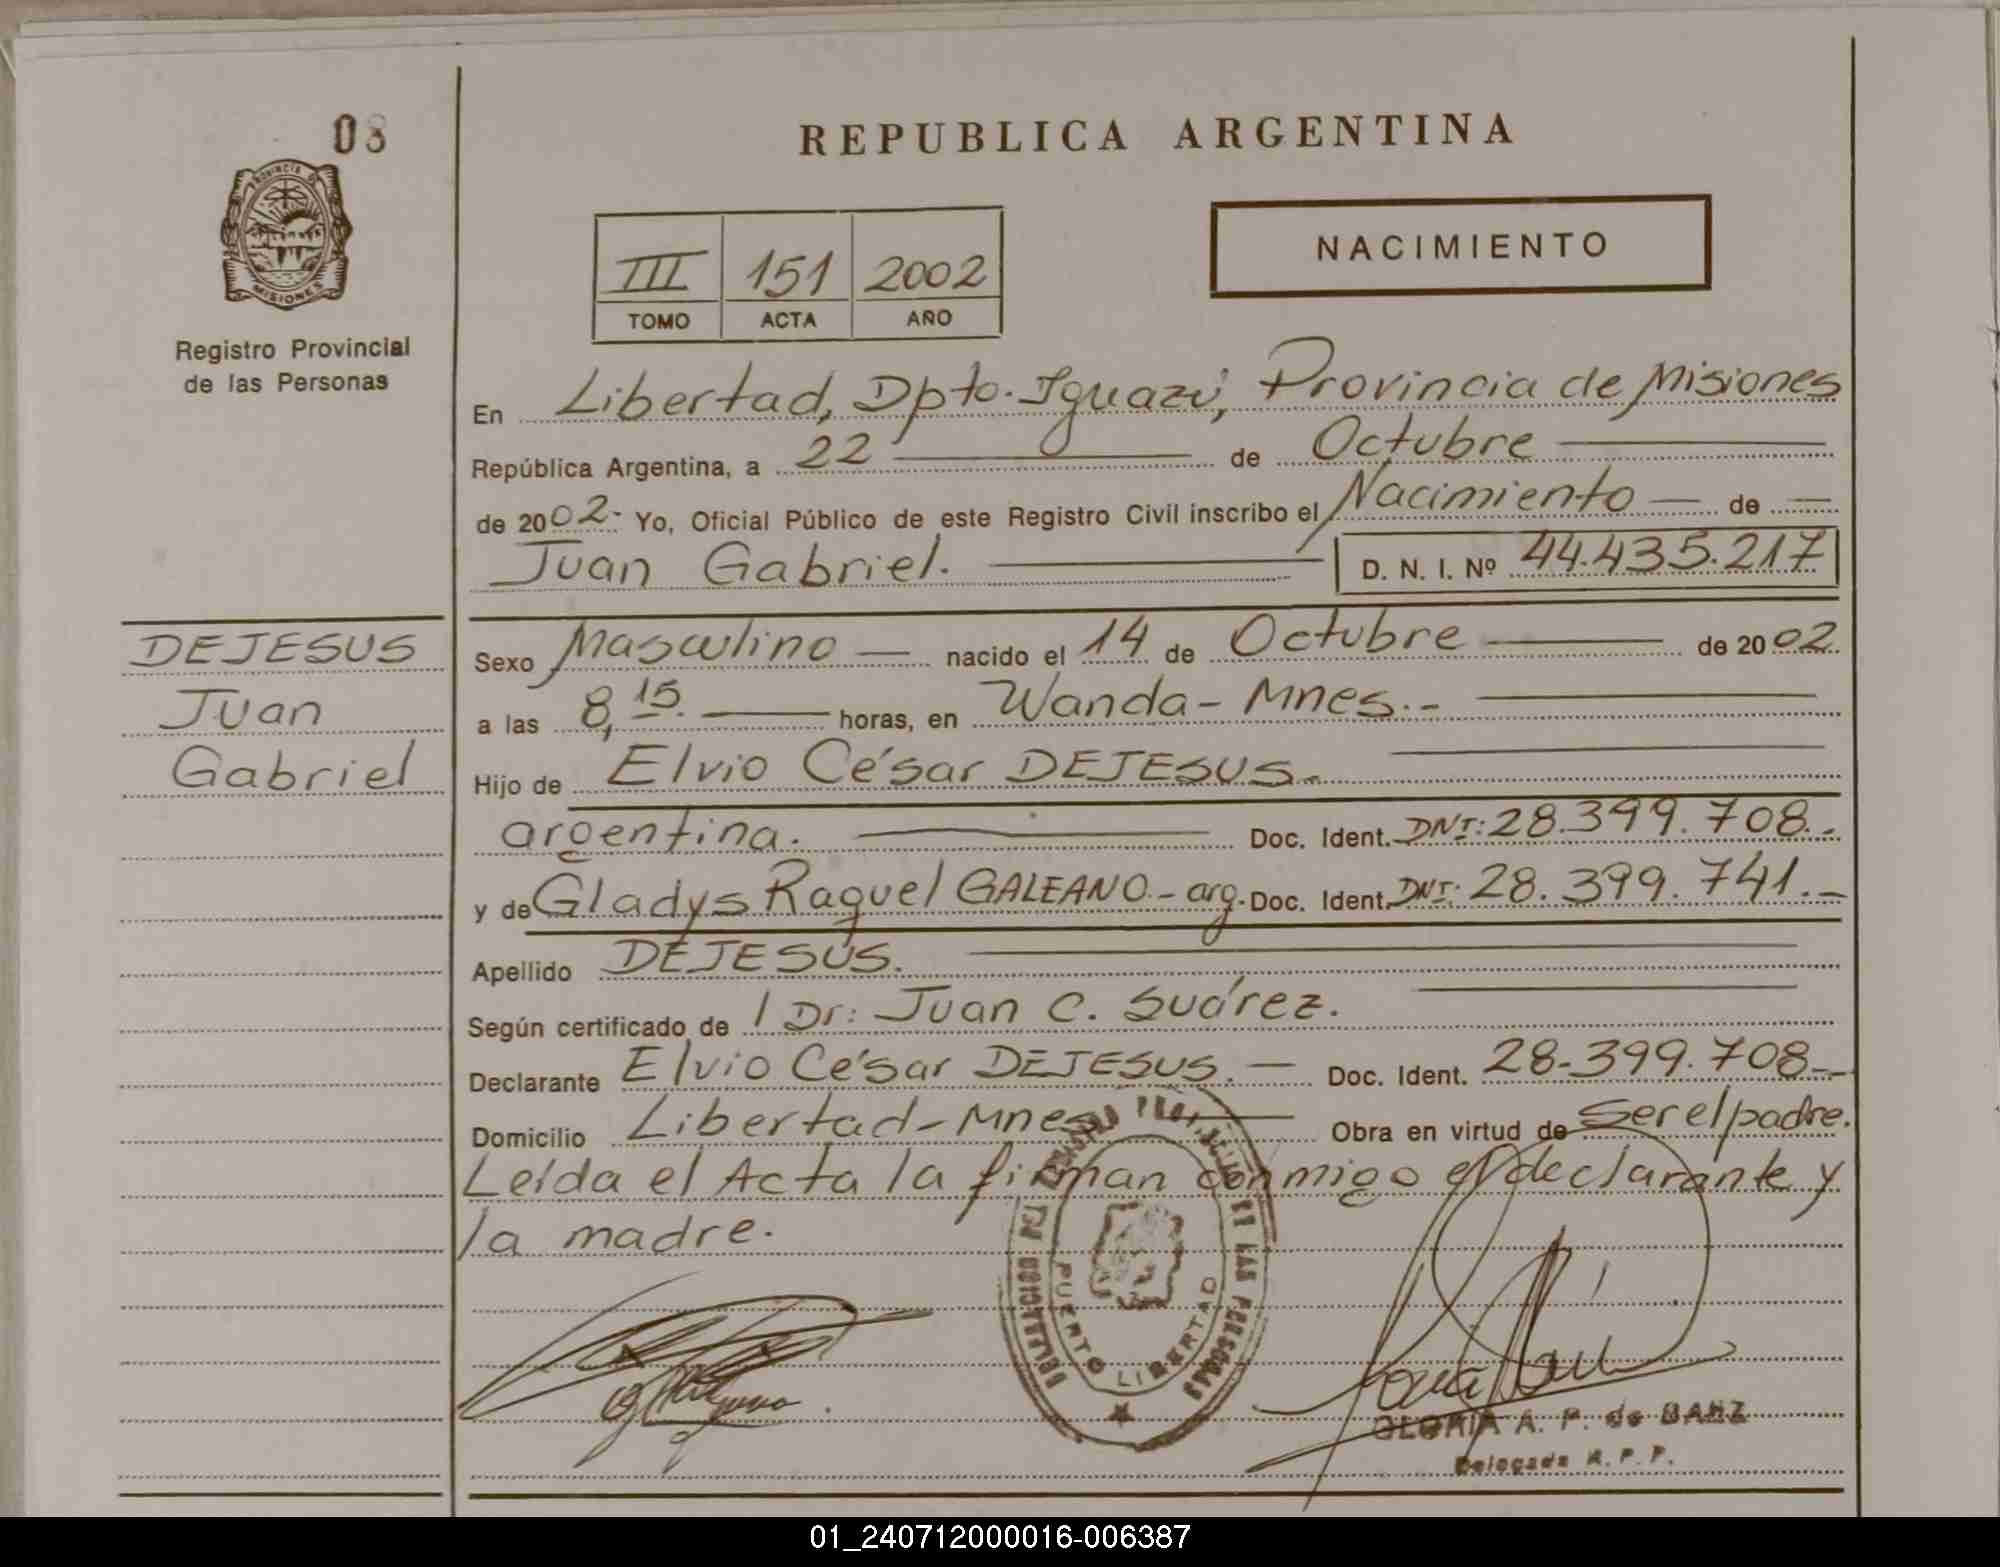 08
PROVINCIA DE
MISIONES
Registro Provincial
de las Personas
DEJESUS
Juan
Gabriel
REPUBLICA ARGENTINA
III 151 2002
TOMO ACTA AÑO
NACIMIENTO
En Libertad, Dpto. Iguazú, Provincia de Misiones
República Argentina, a 22 de Octubre
de 2002- Yo, Oficial Público de este Registro Civil inscribo el Nacimiento de
Juan Gabriel. D. N. I. Nº 44.435.217
Sexo Masculino nacido el 14 de Octubre de 2002
a las 8,15. horas, en Wanda - Mnes.-
Hijo de Elvio César DEJESUS.
argentina. Doc. Ident. DNI: 28.399.708.
y de Gladys Raquel GALEANO.- arg. Doc. Ident. DNI: 28.399.741.-
Apellido DEJESUS.
Según certificado de Dr: Juan C. Suárez.
Declarante Elvio César DEJESUS. Doc. Ident. 28-399.708-
Domicilio Libertad-Mnes Obra en virtud de Ser el padre.
Leída el Acta la firman conmigo el declarante y
la madre.
REGISTRO DE LAS PERSONAS
PUERTO LIBERTAD
GLORIA A. P. de BAHZ
Delegada R. P. P.
01_240712000016-006387